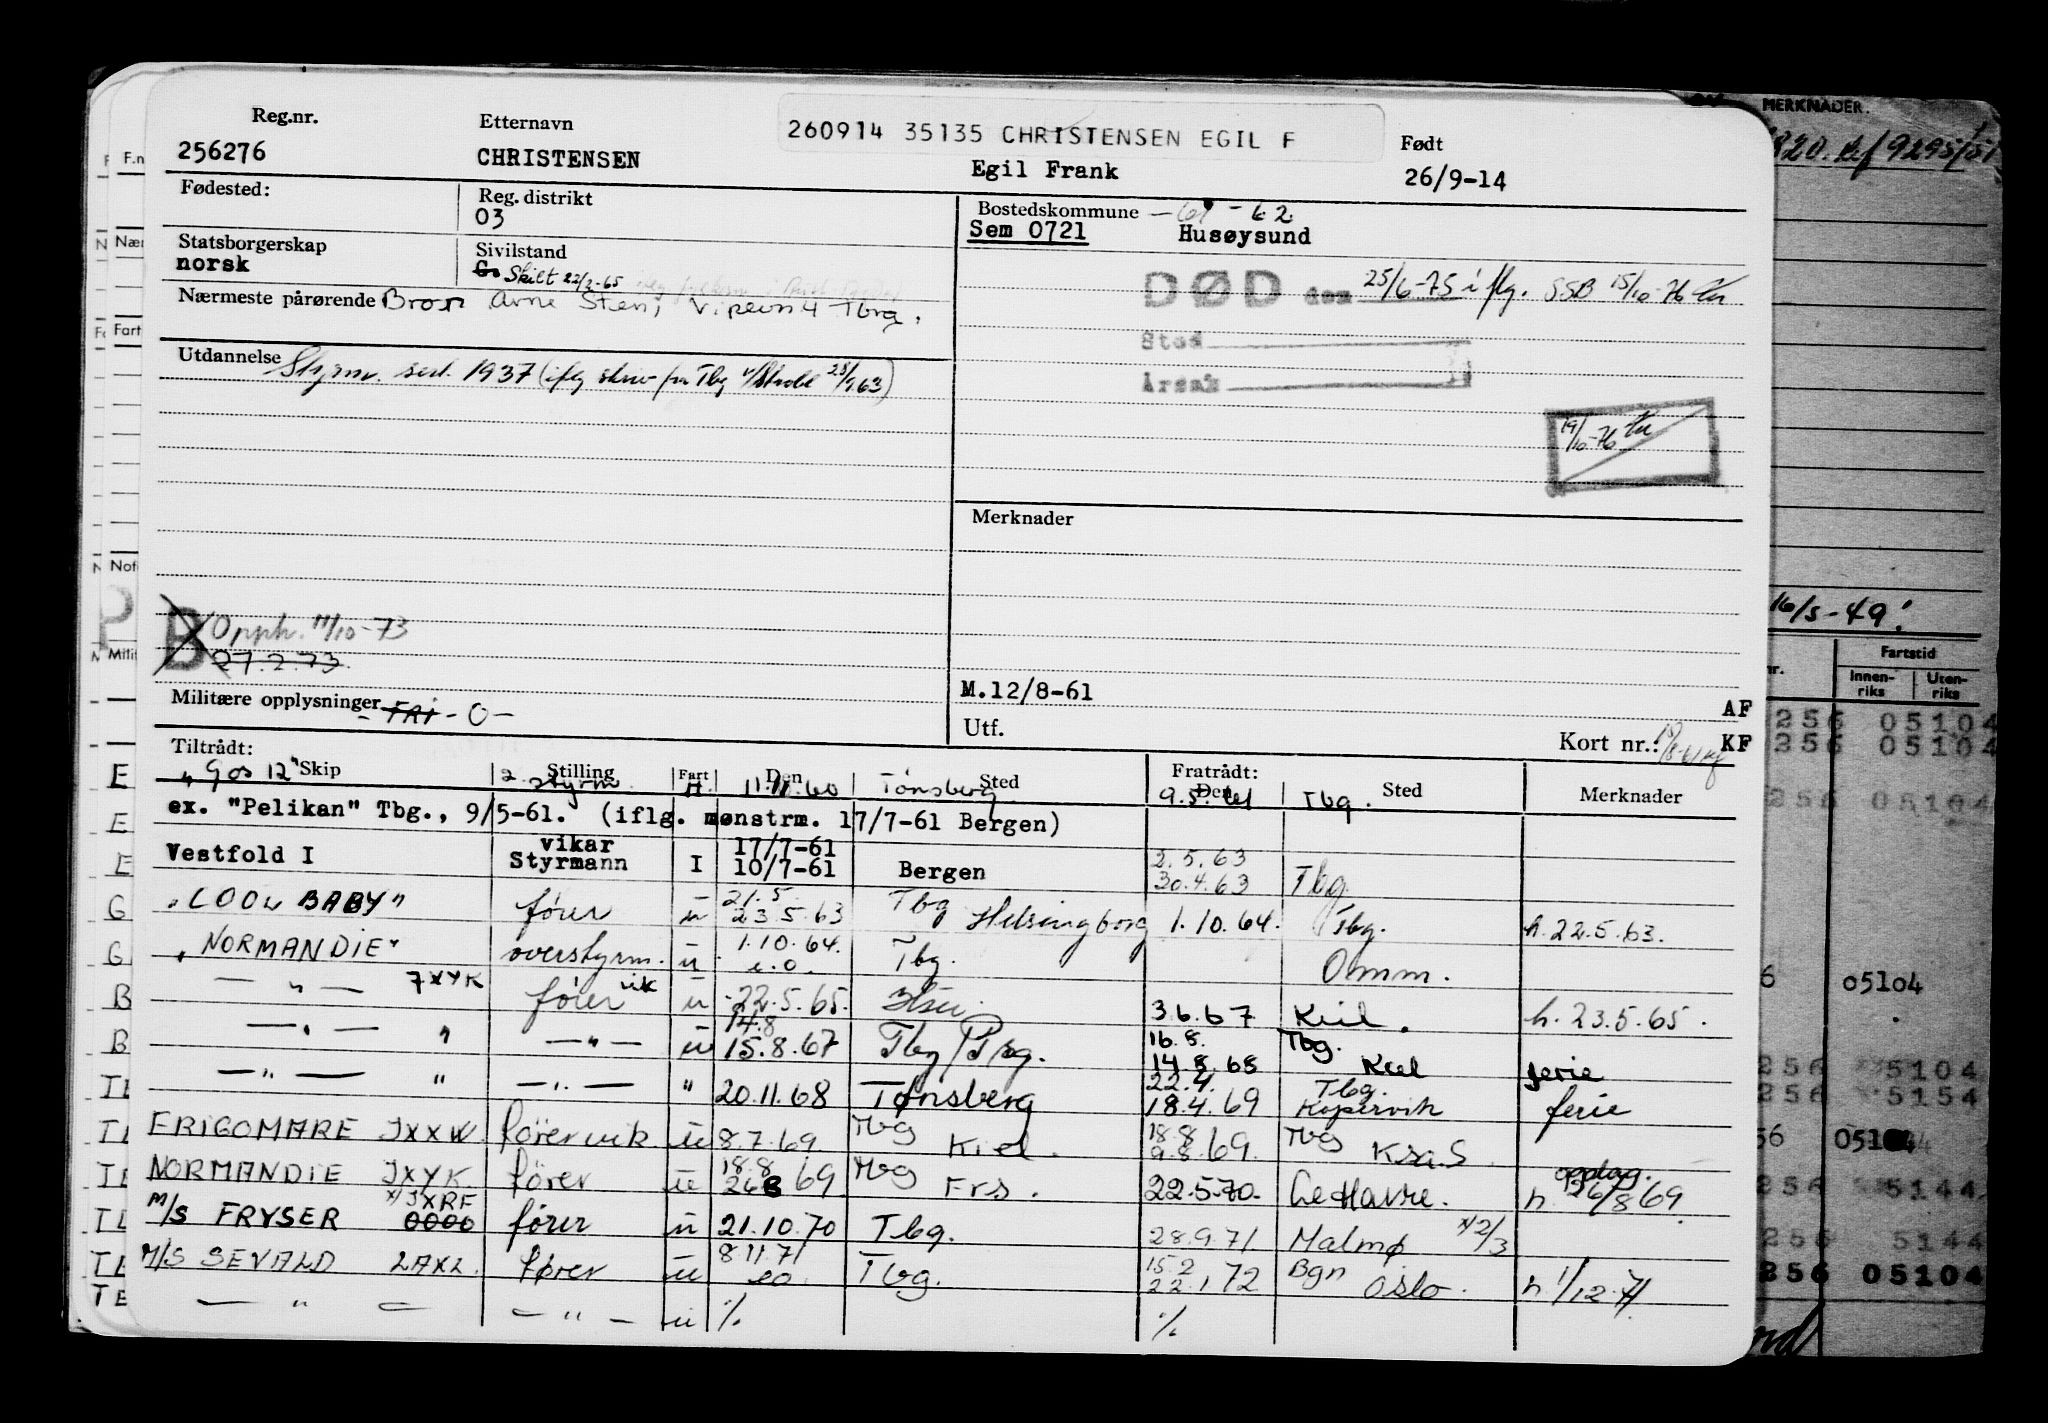 260914 35135 CHRISTENSEN EGIL F
Reg.nr. Etternavn Født
256276 CHRISTENSEN Egil Frank 26/9-14
Fødested: Reg. distrikt Bostedskommune - 61 - 62
03 Sem 0721 Husøysund
Statsborgerskap Sivilstand
norsk Skilt 22/2-65
DØD den 25/6-75 iflg. SSB 15/10-76
Nærmeste pårørende Bror Arne Sten, Tbrg.
Sted
Utdannelse Styrm. sert. 1937 (iflg skriv fra Tbg 25/9.63)
Årsak
19/10-76
Merknader
B Opph. 11/10-73
27.2.73.
Militære opplysninger - FRI - 0 -
M.12/8-61
AF
Utf. Kort nr.: KF
Tiltrådt: Fratrådt:
Skip Stilling Fart Den Sted Den Sted Merknader
"Gos 12" 2. styrm. 11.11.60 Tønsberg 9.5.61 Tbg.
ex. "Pelikan" Tbg., 9/5-61. (iflg. mønstrm. 17/7-61 Bergen)
vikar 17/7-61 2.5.63
Vestfold I Styrmann I 10/7-61 Bergen 30.4.63 Tbg.
21.5
"COOL BABY" fører u 23.5.63 Tbg Helsingborg 1.10.64. Tbg. h.22.5.63.
1.10.64.
"NORMANDIE" overstyrm. u e.o. Tbg. Omm.
— " — JXYK fører vik u 22.5.65. 3.6.67 Kiel. h. 23.5.65.
14.8 16.8. Tbg.
— " — " — " — u 15.8.67 Tbg 14.8.68 Kiel ferie
22.4. Tbg.
— " — " — " — " 20.11.68 Tønsberg 18.4.69 Kopervik ferie
18.8
FRIGOMARE JXXW fører vik u 8.7.69. Tbg Kiel. 9.8.69. Tbg Krsa.S
18.8 oppdag.
NORMANDIE JXYK fører u 26.8 69 Tbg Frs. 22.5.70. Le Havre. h. 26/8 69.
x/JXRF
M/S FRYSER 0000 fører u 21.10.70 Tbg. 28.9.71. Malmø x/2/3
8.11.71 15.2 Bgn
M/S SEVALD LAXL. fører u eo. Tbg. 22.1.72 Oslo. h 1/12.71.
— " — — " — u % %
MERKNADER.
ref 9295/51
16/5-49!
Fartstid
Innen-
riks
Uten-
riks
256 05104
256 05104
256 05104
6 05104
256 5104
256 5154
56 05104
256 5144
256 5144
256 05104
F.n
Nær
Fart
Not
Milit
E
E
E
G
G
B
B